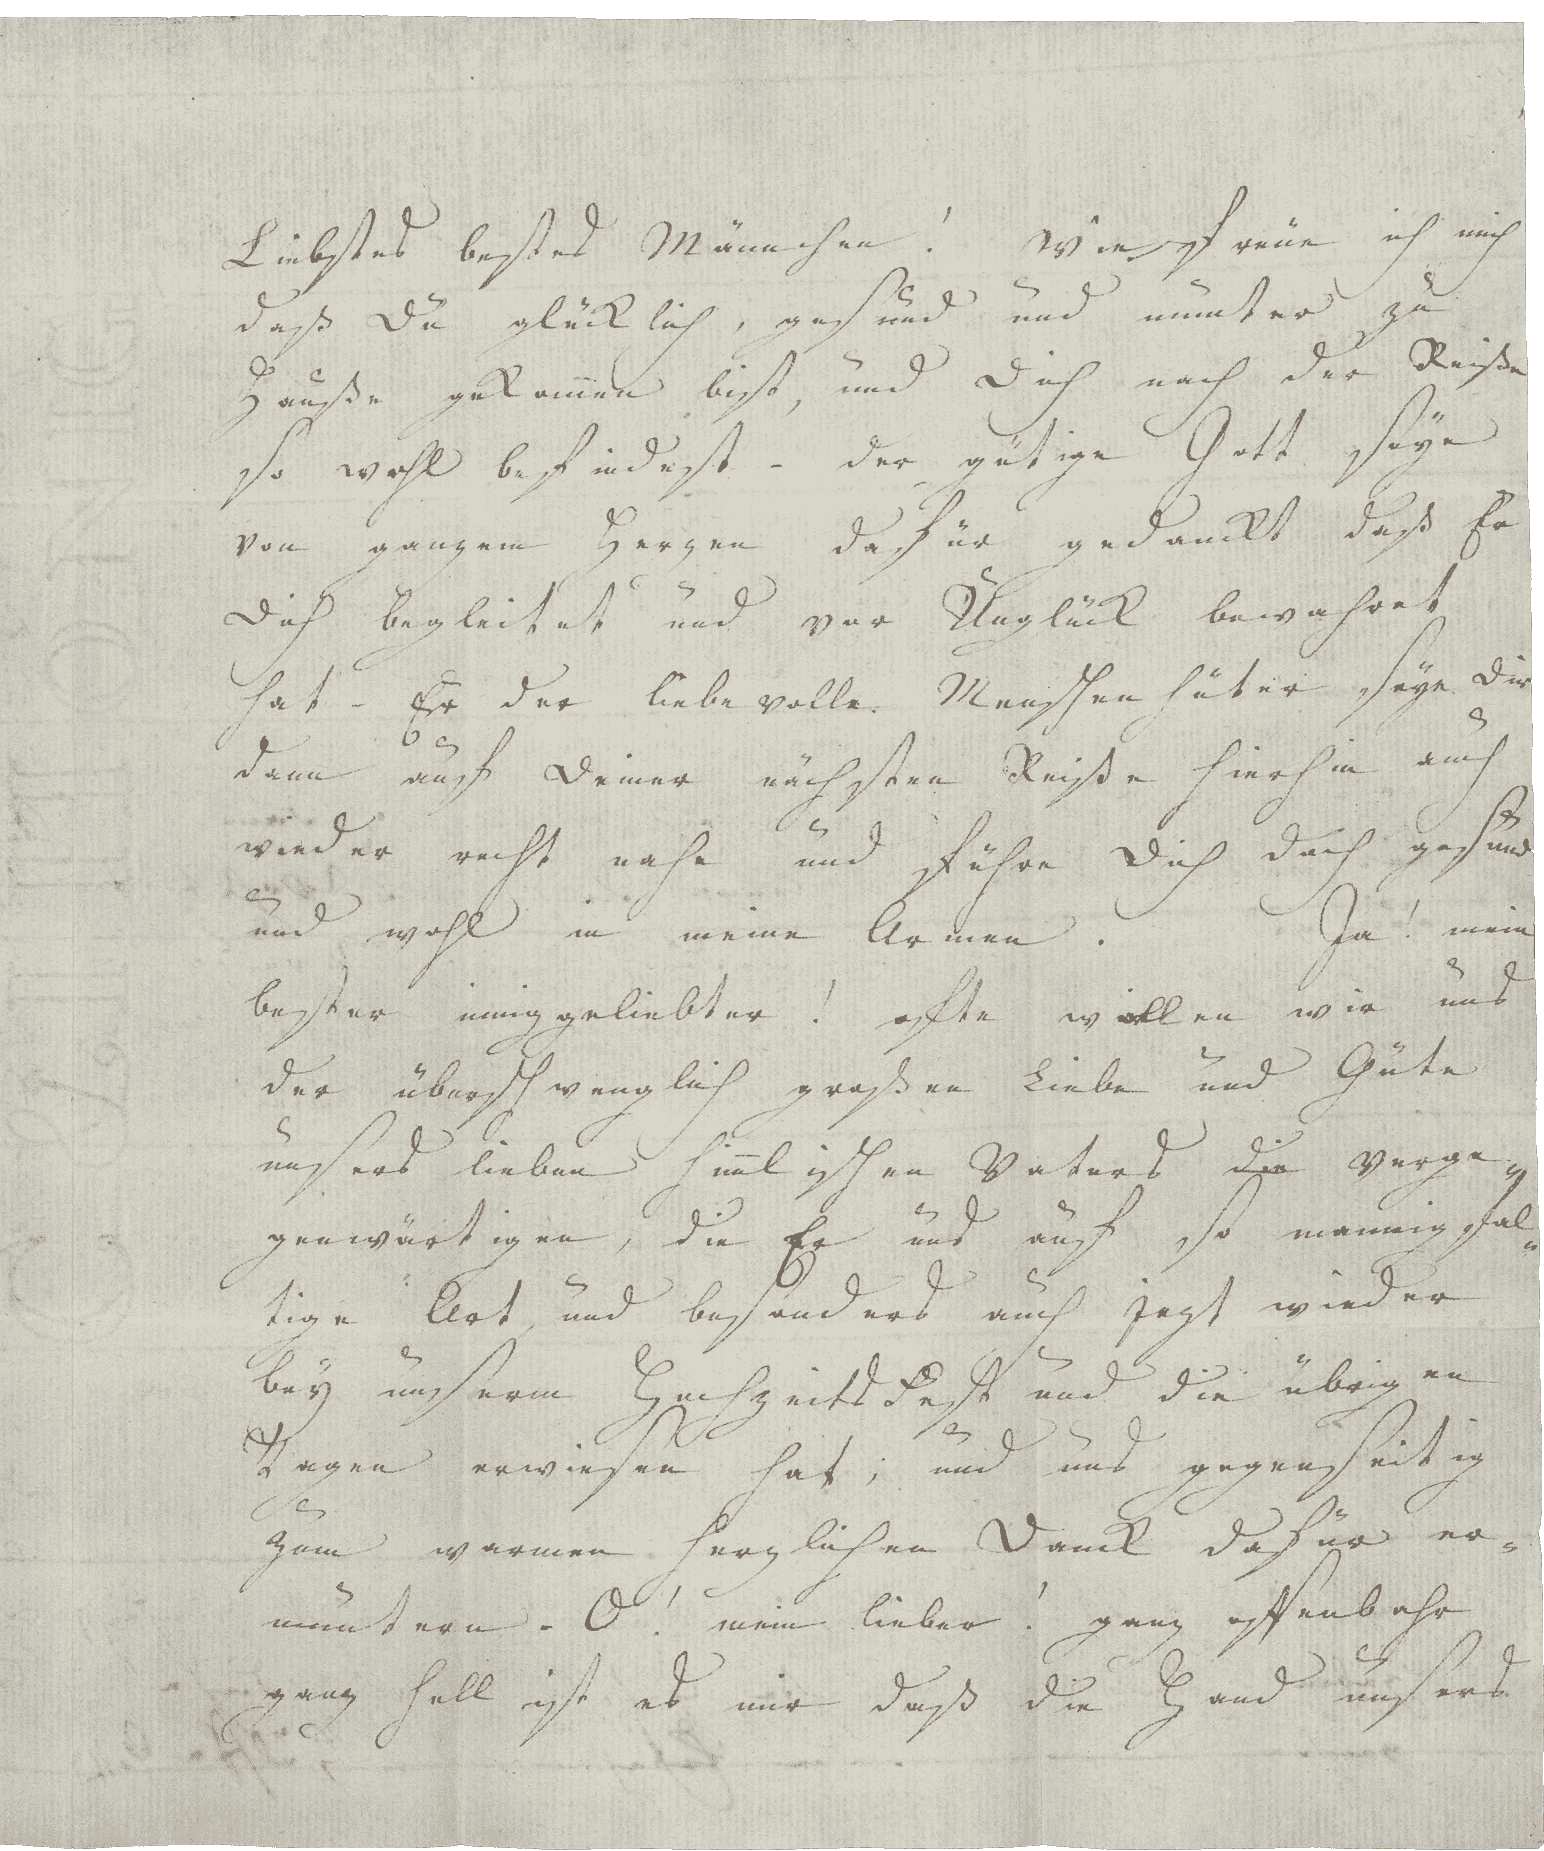 Liebstes bestes Männchen! Wie freue ich mich
daß Du glücklich, gesund und munter zu
Hauße gekom̄en bist, und Dich nach der Reiße
so wohl befindest - der gütige Gott seye
von ganzem Herzen dafür gedanckt daß Er
Dich begleitet und vor Unglück bewahret
hat - Er der liebevolle Menschenhüter seye Dir
dann auf Deiner nächsten Reiße hierhin auch
wieder recht nahe und führe Dich doch gesund
und wohl in meine Armen. Ja! mein
bester inniggeliebter! ofte wollen wir uns
der überschwenglich großen Liebe und Güte
unsers lieben him̄lischen Vaters die verge-
genwärtigen, die Er uns auf so mannigfal-
tige Art und besonders auch jezt wieder
bey unserm Hochzeits Fest und die übrigen
Tagen erwiesen hat, und uns gegenseitig
zum warmen herzlichen Danck dafür er-
muntern - O! mein lieber! ganz offenbahr
ganz hell ist es mir daß die Hand unsers